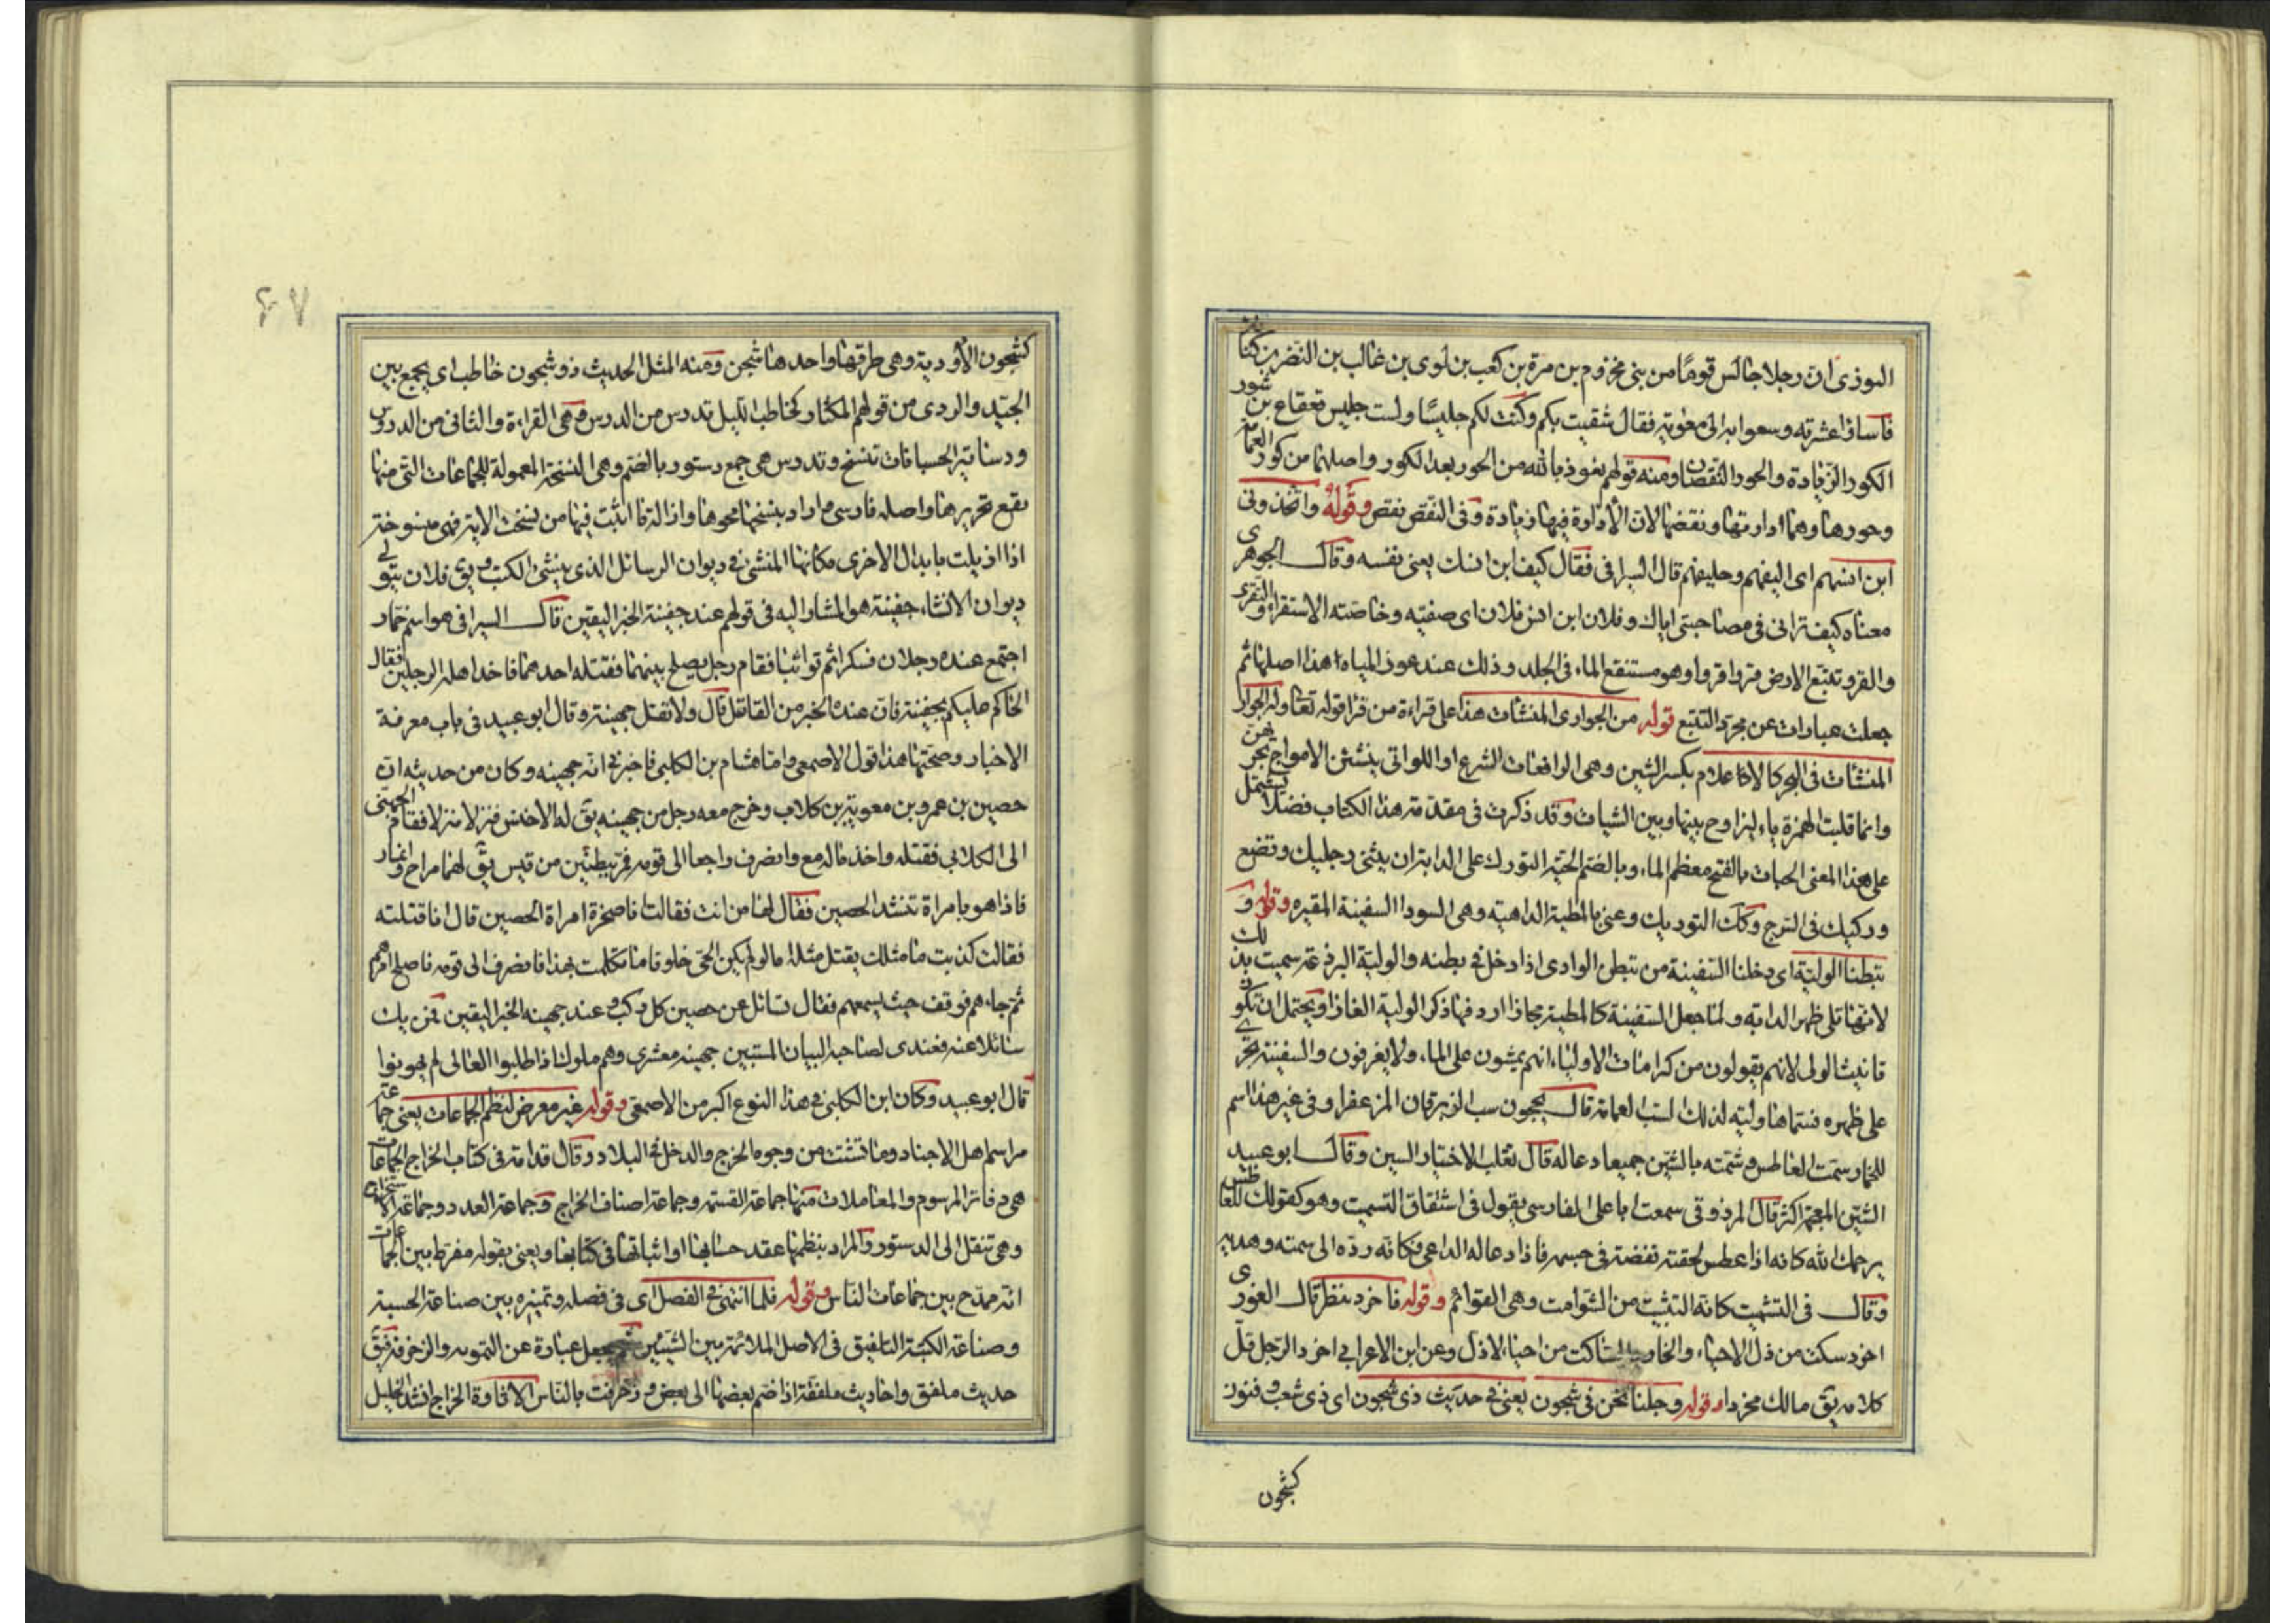 النوذى ان رجلا جالس قومًا من بنى مخزوم بن مرة بن كعب بن لوى بن غالب بن النضر بن كنانة
فآساؤا عشرته وسعوا به الى معوية فقال شقيت بكم وكنت لكم جليسًا ولست جليس قعقاع بن شور
الكور الزيادة والحور النقصان ومنه قولهم نعوذ بالله من الحور بعد الكور واصلهما من كور العمامة
وحورها وهما ادارتها ونقضها لان الأدارة فيها زيادة وفى النقض نقص وقوله واتخذونى
ابن انسهم اى اليفهم وحليفهم قال السيرافى فقال كيف ابن انسك يعنى نفسه وقال الجوهرى
معناه كيف ترانى فى مصاحبتى اياك وفلان ابن انس فلان اى صفيه وخاصته الاستقراء والتقرى
والقرو تتبع الارض قروا قروا وهو مستنقع الماء فى الجلد وذلك عند عوز المياه هذا اصلها ثم
جعلت عبارات عن مجرد التتبع قوله من الجوارى المنشآت هذا على قراءة من قرأ قوله تعا وله الجوار
المنشآت فى البحر كالاعلام بكسر الشين وهى الرافعات الشرع او اللواتى ينشئن الامواج بجريهن
وانما قلبت الهمزة ياء ليزاوج بينها وبين الشيات وقد ذكرت فى مقدمة هذا الكتاب فصلا يشتمل
على هذا المعنى الحباب بالفتح معظم الماء وبالضم الحية التورك على الدابة ان يثنى رجليك وتضع
وركيك فى السرج وكك التوريك وعنى بالمطية الداهية وهى السودا السفينة المقيرة وقوله و
تبطنا الولية اى دخلنا السفينة من تبطن الوادى اذا دخل فى بطنه والولية البرذعة سميت بذلك
لانها تلى ظهر الدابة ولما جعل السفينة كالمطية مجازا اردفها ذكر الولية الغازا ويحتمل ان تكون
تانيث الولى لانهم يقولون من كرامات الاولياء انهم يمشون على الماء ولا يغرقون والسفينة تجرى
على ظهره فسماها ولية لذلك السب العمامة قال يحجون سب الزبرقان المزعفرا وفى غير هذا اسم
للخمار سمت العاطس وشمته بالشين جميعا دعا له قال ثعلب الاختيار السين وقال ابو عبيد
الشين المعجمة اكثر قال المرزوقى سمعت ابا على الفارسى يقول فى اشتقاق التسميت وهو كقولك للعاطس
يرحمك الله كانه اذا عطس لحقته نفضة فى جسمه فاذا دعا له الداعى فكانه رده الى سمته وهديه
وقال فى التشميت كانه التثبيت من الشوامت وهى القوائم وقوله فاخرد ننظر قال الغورى
اخرد سكت من ذل الاحياء والخاو الساكت من احياء لا ذل وعن ابن الاعرابى اخرد الرجل قل
كلامه يق مالك مخردا وقوله وجلنا نحن فى شجون يعنى فى حديث ذى شجون اى ذى شعب وفنون
كشجون
۶۷
كشجون الأودية وهى طرقها واحدها شجن ومنه المثل الحديث ذو شجون خاطب اى يجمع بين
الجيد والردى من قولهم المكثار كخاطب الليل تدرس من الدرس وهى القراءة والثانى من الدروس
ودساتير الحسبانات تنسخ وتدرس هى جمع دستور بالضم وهى النسخة المعمولة للجماعات التى منها
يقع تحريرها واصله فارسى واراد بنسخها محوها وازالة ما اثبت فيها من نسخت الاية فهى منسوخة
اذا ازيلت بابدال الاخرى مكانها المنشئ فى ديوان الرسائل الذى ينشئ الكتب ويق فلان يتولى
ديوان الانشاء جفينة هو المشار اليه فى قولهم عند جفينة الخبر اليقين قال السيرافى هو اسم خمار
اجتمع عنده رجلان فسكرا ثم تواثبا فقام رجل يصلح بينهما فقتله احدهما فاخذ اهله الرجلين فقال
الحاكم عليكم بجفينة فان عنده الخبر من القاتل قال ولا تقل جهينة وقال ابو عبيد فى باب معرفة
الاخبار وصحتها هذا قول الاصمعى واما هشام بن الكلبى فاخبر فى انه جهينه وكان من حديثه ان
حصين بن عمرو بن معوية بن كلاب وخرج معه رجل من جهينه يق له الاخنس فنزلا منزلا فقام الجهنى
الى الكلابى فقتله واخذ ماله مع وانصرف راجعا الى قومه فمر ببطنين من قيس يق لهما مراح وانمار
فاذا هو بامراة تنشد الحصين فقال لها من انت فقالت انا صخرة امراة الحصين قال انا قتلته
فقالت كذبت ما مثلك يقتل مثله اما لو لم يكن الحى خلوفا ما تكلمت بهذا فانصرف الى قومه فاصلح امرهم
ثم جاءهم فوقف حيث يسمعهم فقال تسائل عن حصين كل ركب وعند جهينه الخبر اليقين فمن يك
سائلا عنه فعندى لصاحبه البيان المستبين جهينه معشرى وهم ملوك اذا طلبوا المعالى لم يهونوا
قال ابو عبيد وكان ابن الكلبى فى هذا النوع اكبر من الاصمعى وقوله غير معرض لنظم الجماعات يعنى جماعة
مراسم اهل الاجناد وما تشتت من وجوه الخرج والدخل فى البلاد وقال قدامة فى كتاب الخراج الجماعات
هى دفاتر المرسوم والمعاملات منها جماعة القسمة وجماعة اصناف الخراج وجماعة العدد وجماعة الاستخراج
وهى تنقل الى الدستور والمراد بنظمها عقد حسابها او اثباتها فى كتابها ويعنى بقوله مفرط بين الجماعات
انه ممدح بين جماعات الناس وقوله فلما انتهى فى الفصل اى فى فصله وتميزه بين صناعة الحسبة
وصناعة الكتبة التلفيق فى الاصل الملائمة بين الشيئين ثم جعل عبارة عن التمويه والزخرفة فيق
حديث ملفق واحاديث ملفقة اذا ضم بعضها الى بعض وزخرفت بالناس الاتاوة الخراج انشد الخليل